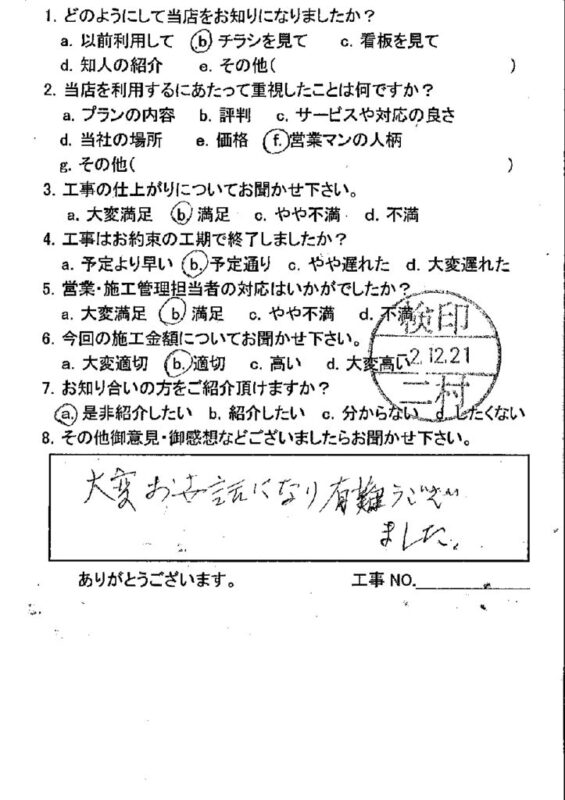 1. どのようにして当店をお知りになりましたか?
a. 以前利用して b チラシを見て c. 看板を見て
d. 知人の紹介 e. その他( )
2. 当店を利用するにあたって重視したことは何ですか?
a. プランの内容 b. 評判 c. サービスや対応の良さ
d. 当社の場所 e. 価格 f. 営業マンの人柄
g. その他( )
3. 工事の仕上がりについてお聞かせ下さい。
a. 大変満足 b. 満足 c. やや不満 d. 不満
4. 工事はお約束の工期で終了しましたか?
a. 予定より早い b. 予定通り c. やや遅れた d. 大変遅れた
5. 営業・施工管理担当者の対応はいかがでしたか?
a. 大変満足 b. 満足 c. やや不満 d. 不満
6. 今回の施工金額についてお聞かせ下さい。
a. 大変適切 b. 適切 c. 高い d. 大変高い
検印
2.12.21
二村
7. お知り合いの方をご紹介頂けますか?
a. 是非紹介したい b. 紹介したい c. 分からない d したくない
8. その他御意見・御感想などございましたらお聞かせ下さい。
大変お世話になり有難うござい
ました。
ありがとうございます。 工事 NO.